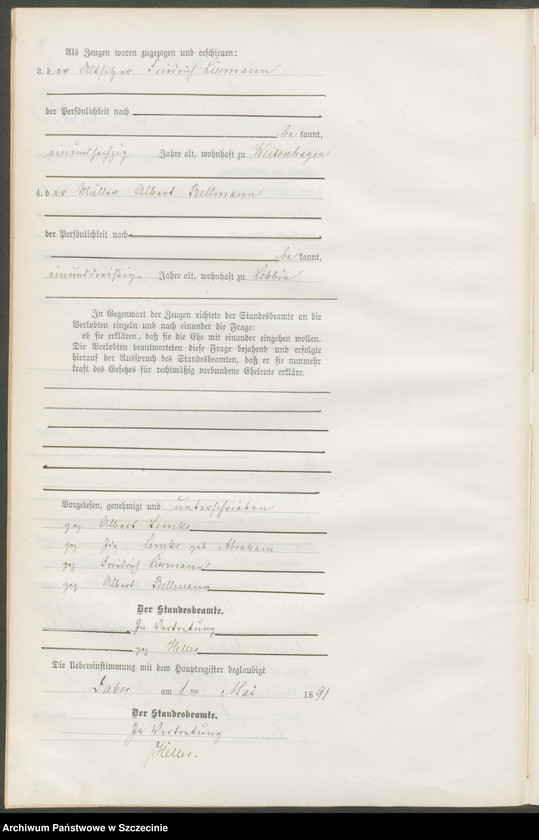 Als Zeugen waren zugezogen und erschienen:
3. der Altsitzer Friedrich Liermann
der Persönlichkeit nach
be kannt,
einundsechzig Jahre alt, wohnhaft zu Weitenhagen
4. der Müller Albert Bellmann
der Persönlichkeit nach
be kannt,
einunddreißig Jahre alt, wohnhaft zu Lebbin
In Gegenwart der Zeugen richtete der Standesbeamte an die
Verlobten einzeln und nach einander die Frage:
ob sie erklären, daß sie die Ehe mit einander eingehen wollen.
Die Verlobten beantworteten diese Frage bejahend und erfolgte
hierauf der Ausspruch des Standesbeamten, daß er sie nunmehr
kraft des Gesetzes für rechtmäßig verbundene Eheleute erkläre.
Vorgelesen, genehmigt und unterschrieben
gez. Albert Lemke
gez. Ida Lemke geb Abraham
gez. Friedrich Liermann
gez. Albert Bellmann
Der Standesbeamte.
In Vertretung
gez. Heller
Die Uebereinstimmung mit dem Hauptregister beglaubigt
Daber am 1 ten Mai 1891
Der Standesbeamte.
In Vertretung
Heller.
Archiwum Państwowe w Szczecinie